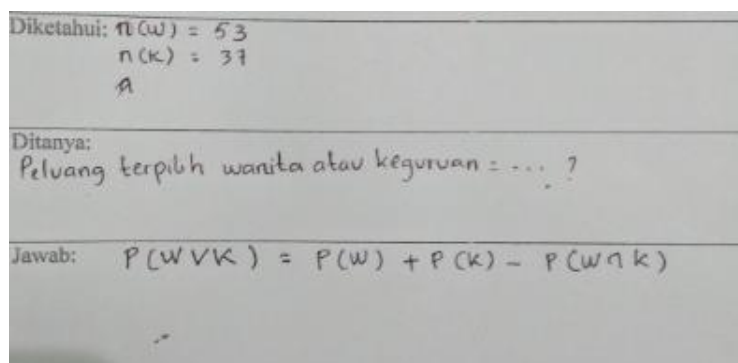 Diketahui: n(W) = 53
n(K) = 37
n
Ditanya:
Peluang terpilih wanita atau keguruan = .... ?
Jawab: P(W V K) = P(W) + P(K) - P(W ∩ K)